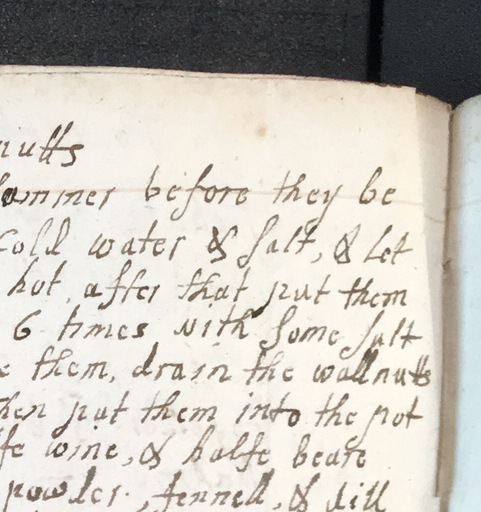 nutts
before they be
Cold water & salt, & let
hot, after that put them
6 times with some salt
them, drain the wallnutts
then put them into the pot
wine, & halfe beare
powder, fennell, & dill